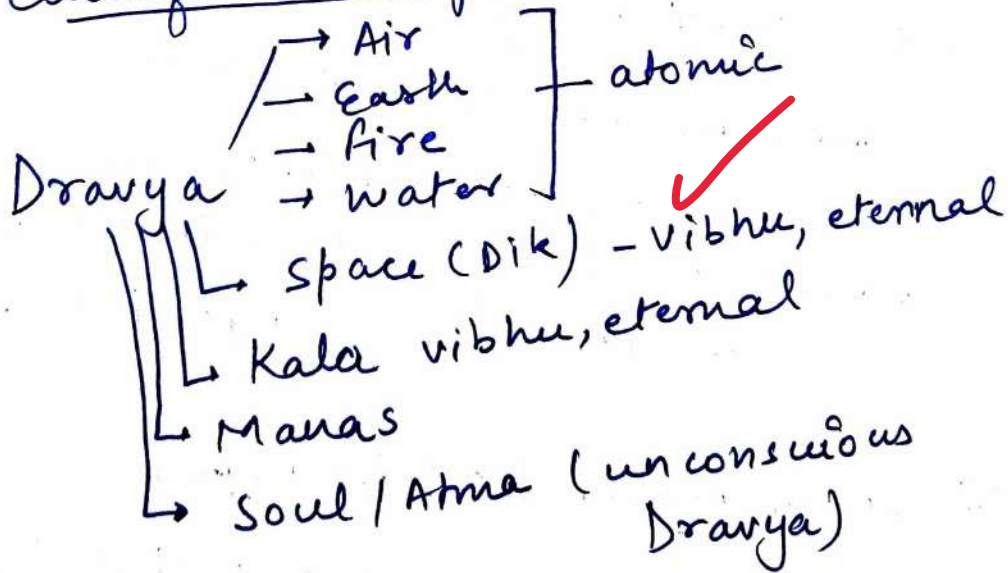 → Air
→ Earth
→ fire
→ water
atomic
Dravya
space (Dik) - vibhu, eternal
Kala vibhu, eternal
Manas
Soul / Atma (unconscious
Dravya)